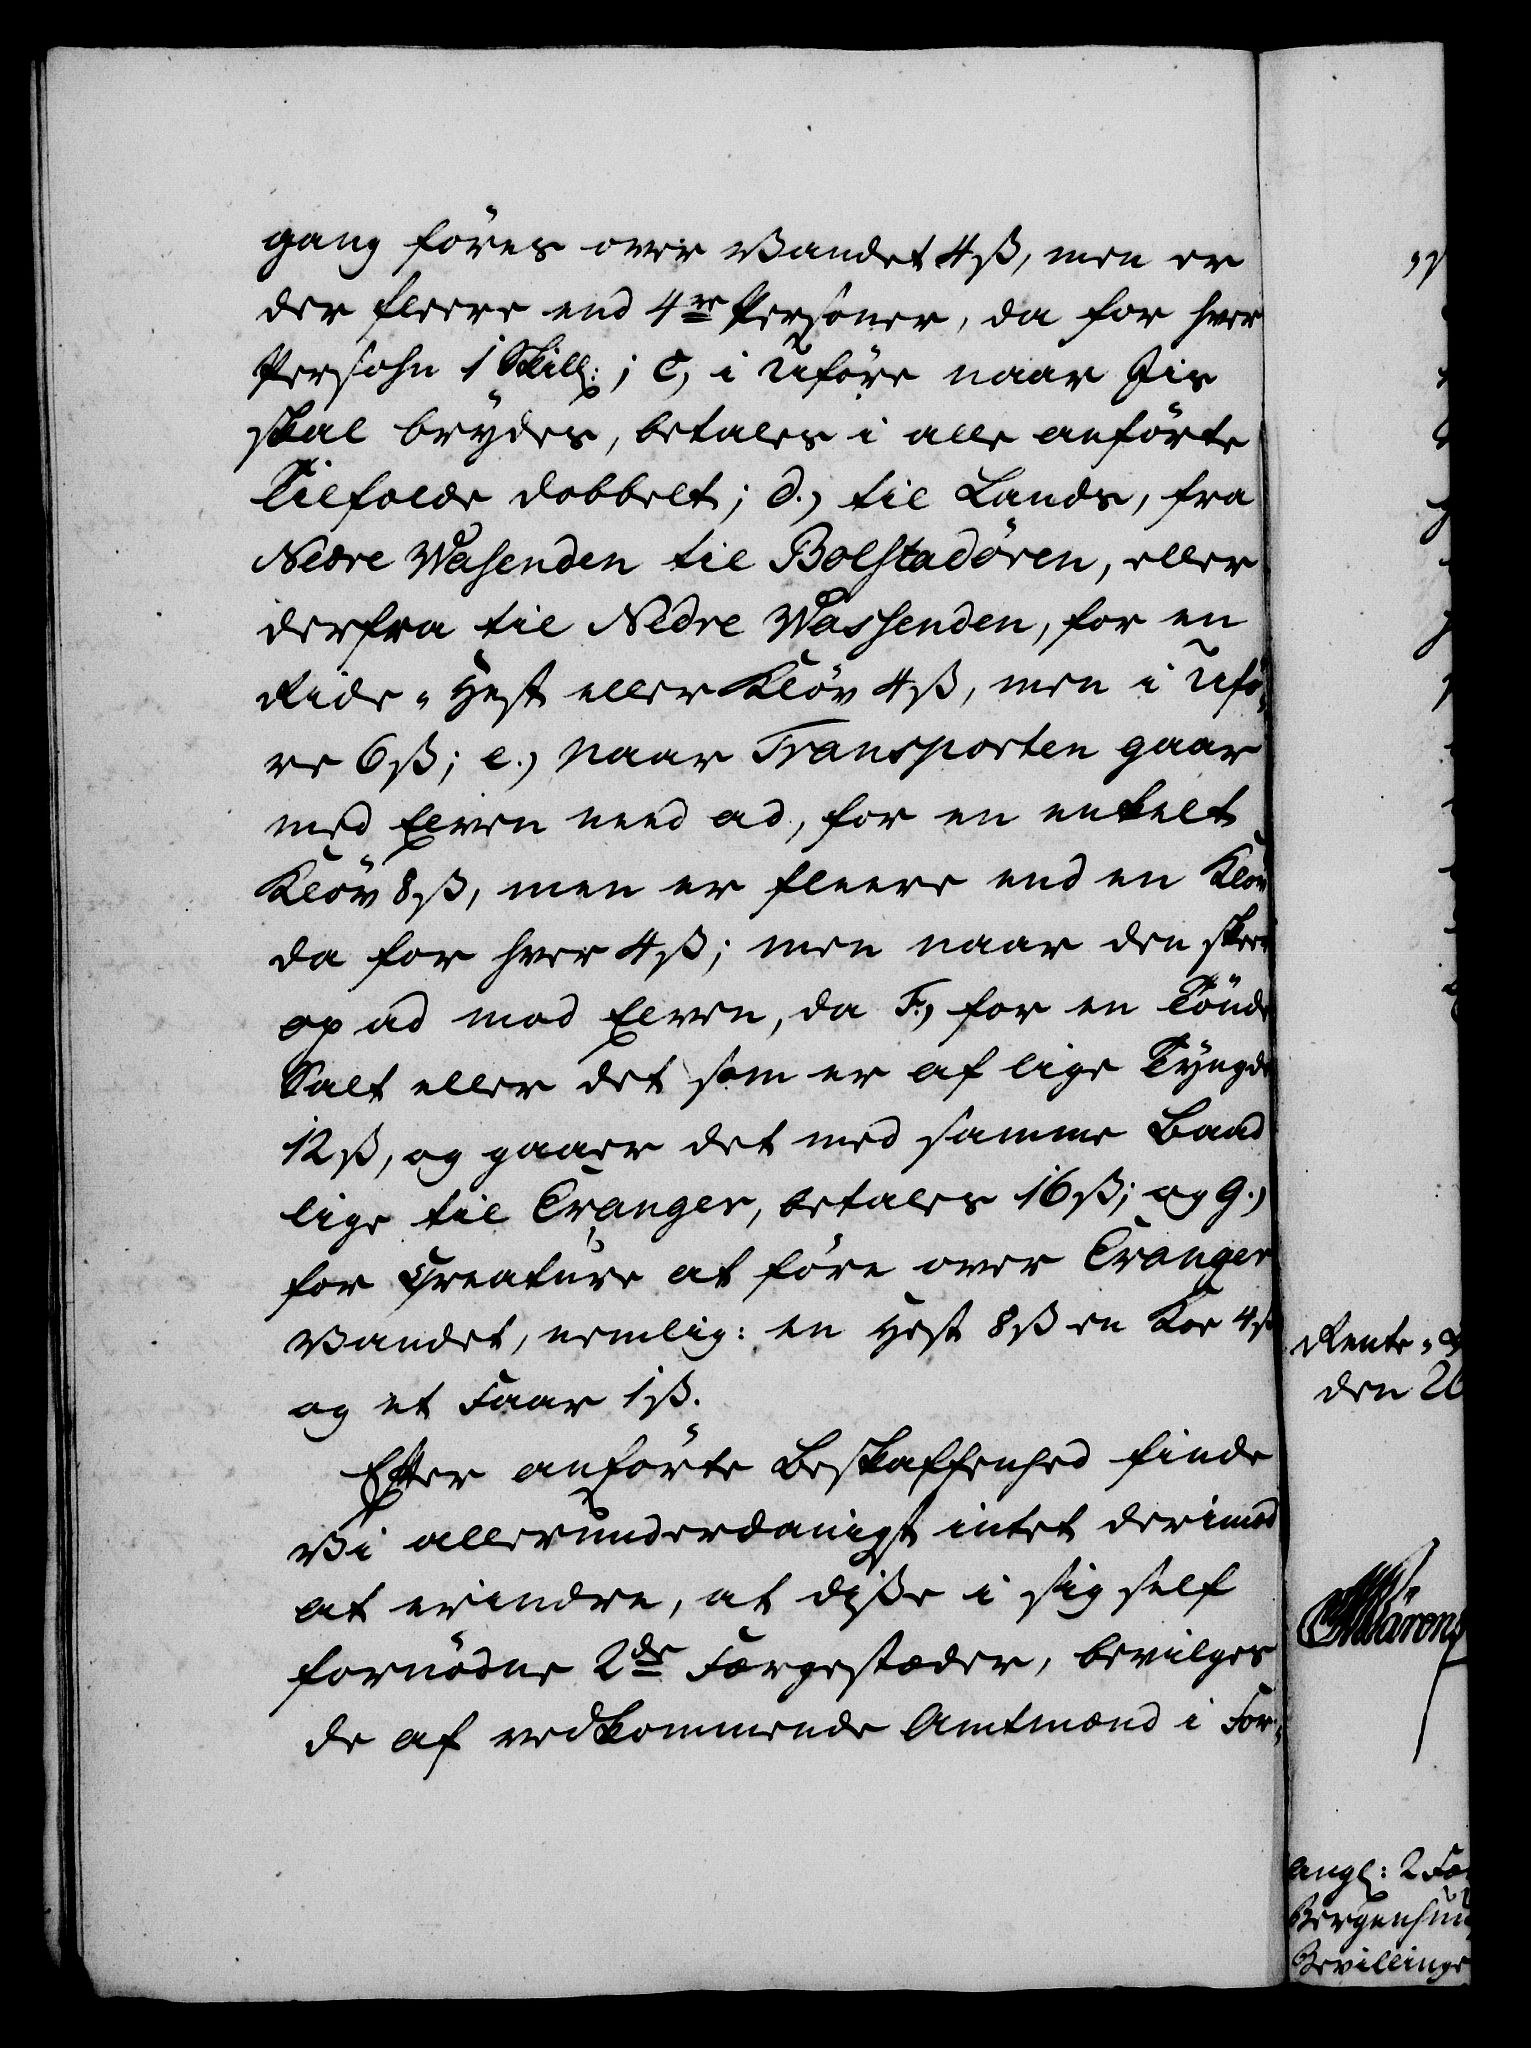 gang föres over Vandet 4 ß, men er
der fleere end 4re Personer, da for hver
Persohn 1 Skill:; c, i Uföre naar Jis
skal brÿdes, betales i alle anförte
Tilfolde dobbelt; d., til Lands, fra
Nedre Wasenden til Bolstadören, eller
derfra til Nedre Wassenden, for en
Ride-Hest eller Klöv 4 ß, men i Ufö-
re 6 ß; e., naar Transporten gaar
med Elven need ad, for en enkelt
Klöv 8 ß, men er fleere end en Klöv
da for hver 4 ß; men naar den skeer
op ad mod Elven, da F., for en Tönde
Salt eller det som er af lige Tÿngde
12 ß, og gaaer det med samme Baad
lige til Evanger, betales 16 ß; og g.,
for Creature at före over Evanger
Vandet, nemlig: en Hest 8 ß en Koe 4 ß
og et Faar 1 ß.
Efter anförte Beskaffenhed finde
Vi allerunderdanigst intet derimod
at erindre, at diße i sig self
fornödne 2de Færgestæder, bevilges
de af vedkommende Amtmænd i For-
Rente-
den 26
angl: 2 Fæ
Bergenhuu
Bevillinge